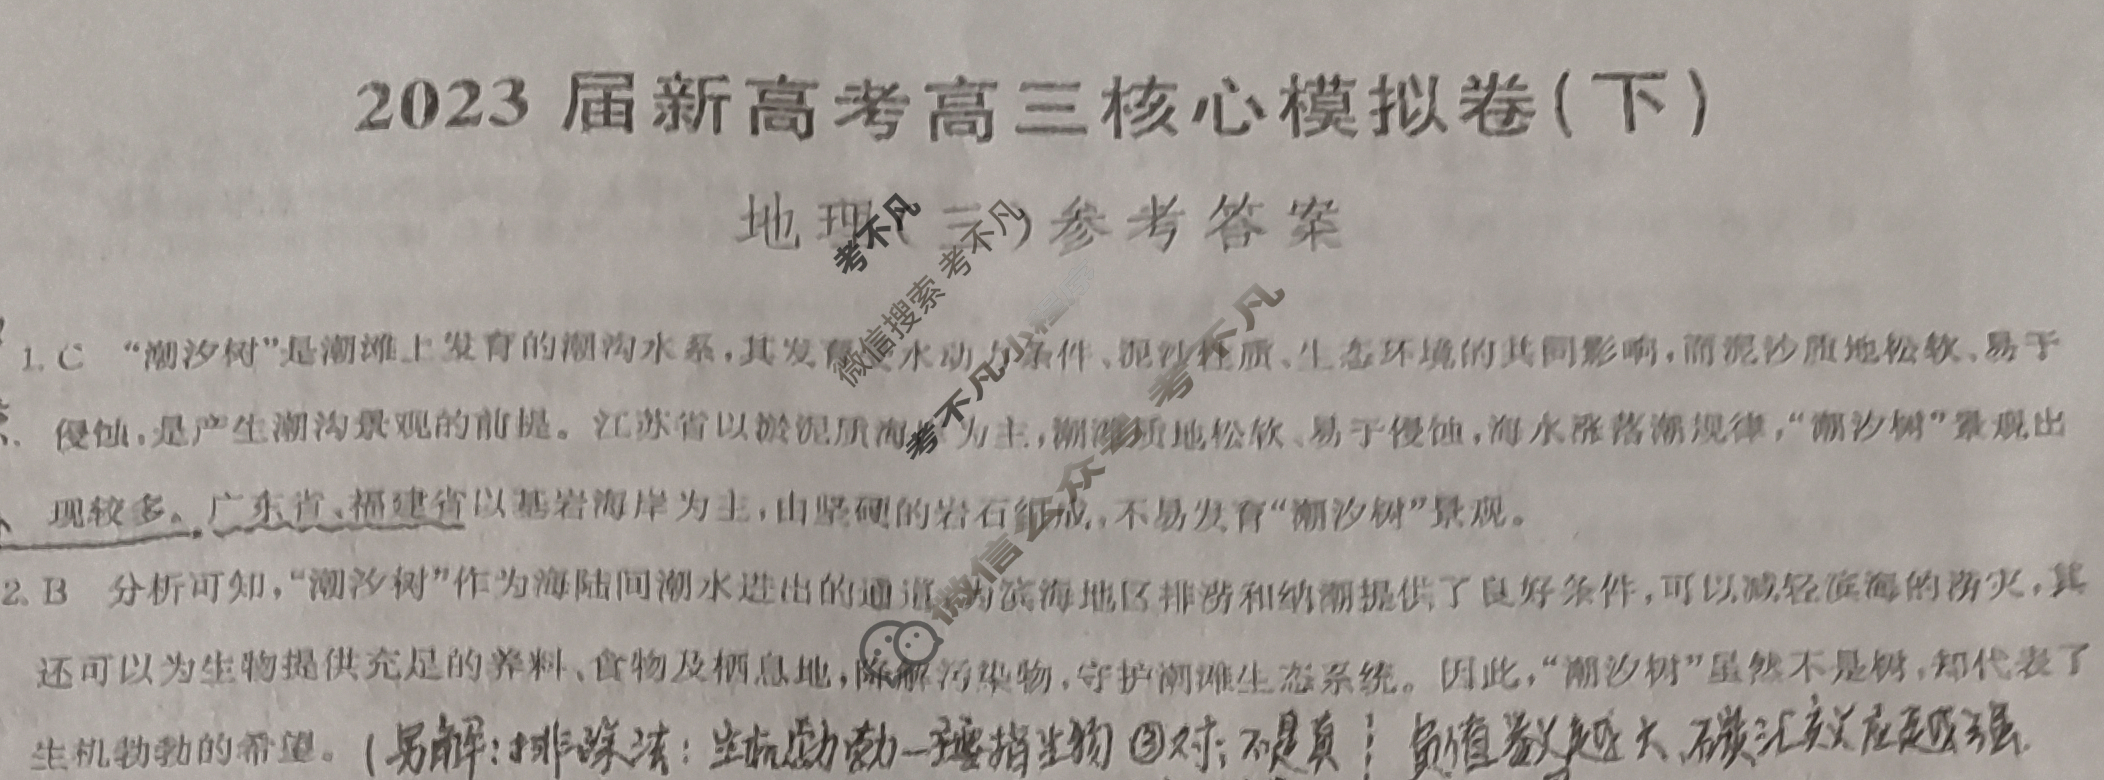 2023届新高考高三核心模拟卷(下)
地理(三)参考答案
1. C “潮汐树”是潮滩上发育的潮沟水系,其发育受水动力条件、泥沙性质、生态环境的共同影响,而泥沙质地松软、易于
侵蚀,是产生潮沟景观的前提。江苏省以淤泥质海岸为主,潮滩质地松软、易于侵蚀,海水涨落潮规律,“潮汐树”景观出
现较多。广东省、福建省以基岩海岸为主,由坚硬的岩石组成,不易发育“潮汐树”景观。
2. B 分析可知,“潮汐树”作为海陆间潮水进出的通道,为滨海地区排涝和纳潮提供了良好条件,可以减轻滨海的涝灾,其
还可以为生物提供充足的养料、食物及栖息地,降解污染物,守护潮滩生态系统。因此,“潮汐树”虽然不是树,却代表了
生机勃勃的希望。(另解:排除法:生机勃勃一词指生物)③对;不是真 负值数越大,碳汇效应越强.
考不凡
微信搜索 考不凡
考不凡小程序
微信公众号 考不凡